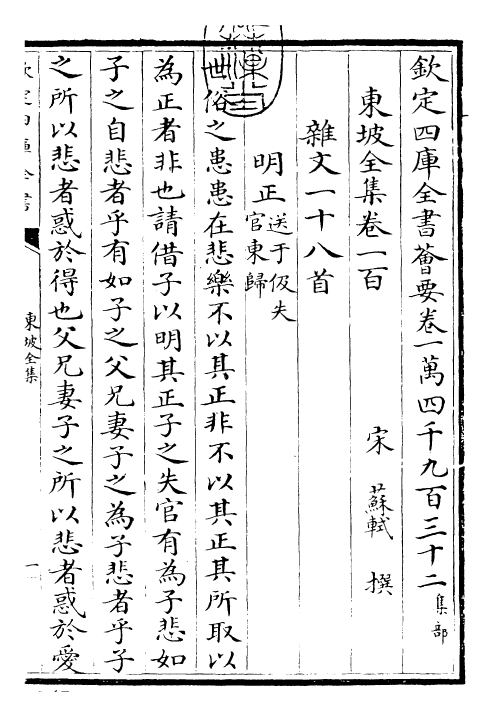 欽定四庫全書薈要卷一萬四千九百三十二 集部
東坡全集卷一百
宋 蘇軾 撰
雜文一十八首
明正 送于伋失官東歸
世俗之患患在悲樂不以其正非不以其正其所取以
為正者非也請借子以明其正子之失官有為子悲如
子之自悲者乎有如子之父兄妻子之為子悲者乎子
之所以悲者惑於得也父兄妻子之所以悲者惑於愛
東坡全集
一